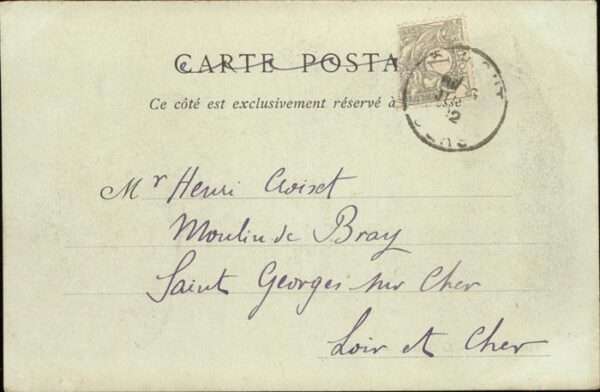 CARTE POSTA
Ce côté est exclusivement réservé à
esse
Mr Henri Croizet
Moulin de Bray
Saint Georges sur Cher
Loir et Cher